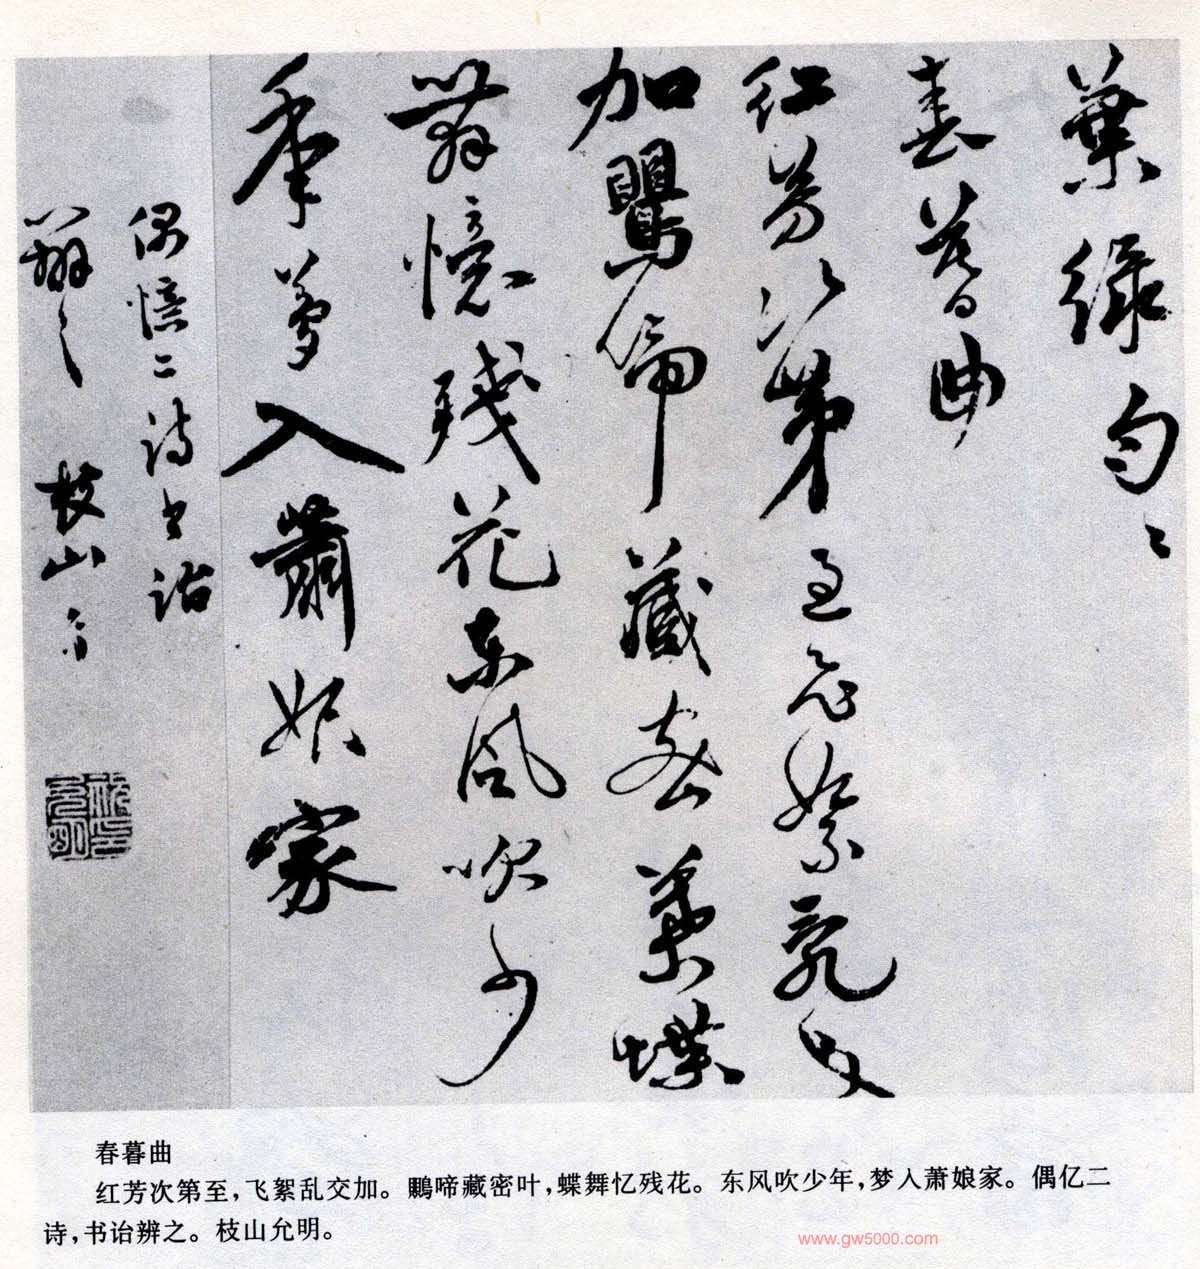 葉綠匀〻
春暮曲
红芳次第至飛絮亂交
加鸎啼藏密葉蝶
舞憶残花東風吹少
年夢入蕭娘家
偶憶二詩書詒
辦之 枝山
春暮曲
红芳次第至，飞絮乱交加。鸎啼藏密叶，蝶舞忆残花。东风吹少年，梦入萧娘家。偶亿二
诗，书诒辨之。枝山允明。
www.gw5000.com